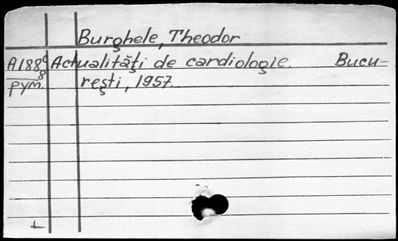 Burghele, Theodor
A188c8 Actualităţi de cardiologie. Bucu-
рум. reşti, 1957.